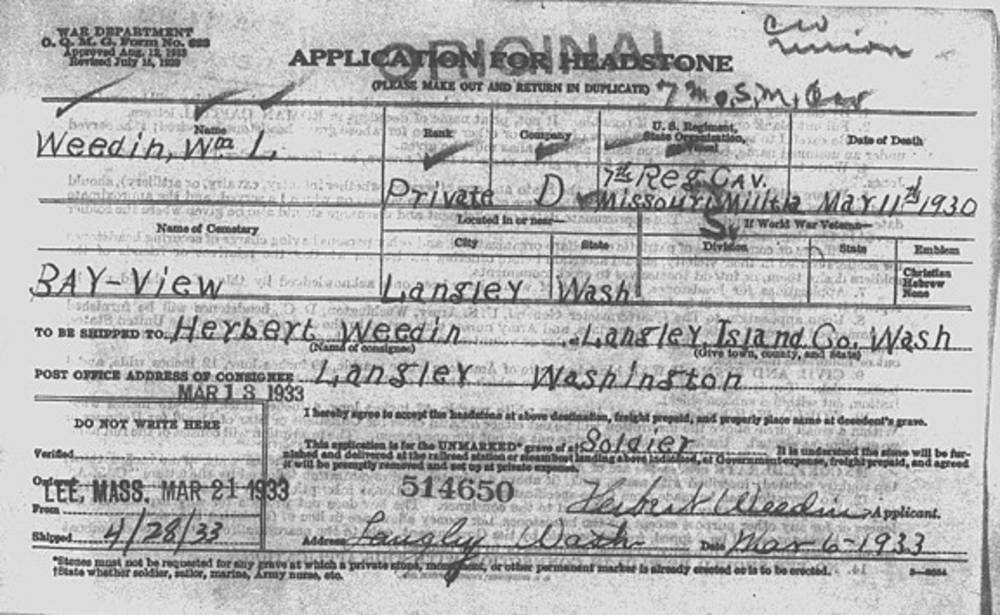 WAR DEPARTMENT
O. Q. M. G. Form No. 623
Approved Aug. 12, 1918
Revised July 15, 1929
ORIGINAL
CW
Union
APPLICATION FOR HEADSTONE
(PLEASE MAKE OUT AND RETURN IN DUPLICATE)
7 Mo. S. M. Cav
Name
Rank
Company
U. S. Regiment,
State Organization,
Date of Death
Weedin, Wm L.
Private
D
7th Reg. Cav.
Missouri Militia
S.
Mar 11th 1930
Name of Cemetery
Located in or near—
City
State
If World War Veteran—
Division
State
Emblem
BAY-View
Langley
Wash
Christian
Hebrew
None
TO BE SHIPPED TO Herbert Weedin Langley, Island Co. Wash
(Name of consignee)
(Give town, county, and State)
POST OFFICE ADDRESS OF CONSIGNEE Langley Washington
MAR 13 1933
DO NOT WRITE HERE
I hereby agree to accept the headstone at above destination, freight prepaid, and properly place same at decedent's grave.
Verified
This application is for the UNMARKED* grave of a† Soldier It is understood the stone will be fur-
nished and delivered at the railroad station or steamboat landing above indicated, at Government expense, freight prepaid, and agreed
it will be promptly removed and set up at private expense.
LEE, MASS. MAR 21 1933
514650
From
Herbert Weedin Applicant.
Shipped 4/28/33
Address Langley Wash.
Date Mar 6-1933
*Stones must not be requested for any grave at which a private stone, monument, or other permanent marker is already erected or is to be erected.
†State whether soldier, sailor, marine, Army nurse, etc.